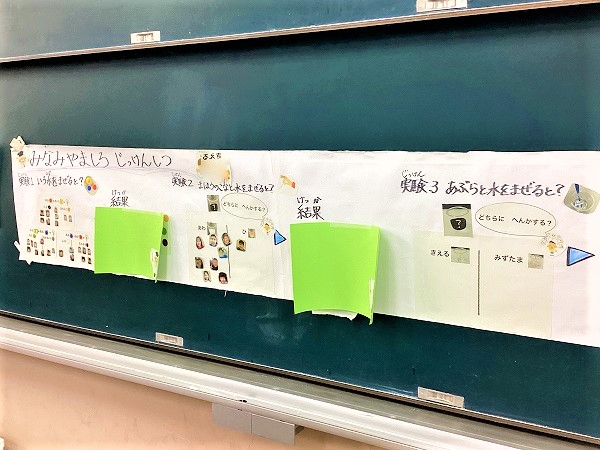 みなみやましろ じっけんしつ
実験1 いろ水をまぜると?
けっか
結果
実験2 まほうのこなと水をまぜると?
?
どちらに へんかする?
あわ
ひ
けっか
結果
じっけん
実験3 あぶらと水をまぜると?
?
どちらに へんかする?
きえる
みずたま